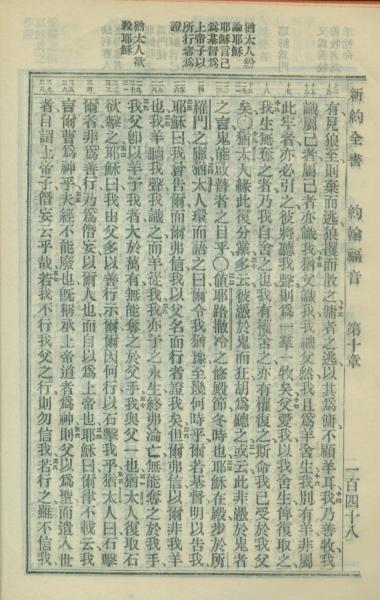 新約全書 約翰福音 第十章 一百四十八
猶太人紛
論耶穌
耶穌言己
爲基督爲
上帝子以
所行
證
猶太人欲
殺耶穌
有見狼至則棄而逃狼攫而散之傭者之逃以其爲傭不顧羊耳我乃善牧我
識屬己者屬己者亦識我猶父識我我識父然我且爲羊舍生我別有羊非屬
此牢者亦必引之彼將聽我聲則爲一羣一牧矣父愛我以我舍生俾復取之
我生無奪之者乃我自舍之也我有權舍之亦有權復之斯命我已受於我父
矣○猶太人緣此復分黨多云彼憑於鬼而狂胡爲聽之或云此非憑於鬼者
之言鬼能啟瞽者之目乎○値耶路撒冷之修殿節冬時也耶穌在殿步於所
羅門之廊猶太人環而語之曰爾令我猶豫至幾何時乎爾若基督明以告我
耶穌曰我嘗告爾而爾弗信我以父名而行者證我矣但爾弗信以爾非我羊
也我羊聽我聲我識之而羊從我我亦予之永生終弗淪亡無能奪之於我手
我父卽以羊予我者大於萬有無能奪之於父手我與父一也猶太人復取石
欲擊之耶穌曰我由父多以善行示爾爾因何行以石擊我乎猶太人曰石擊
爾者非爲善行乃爲僭妄以爾人也而自以爲上帝也耶穌曰爾律不載云我
言爾曹爲神乎夫經不能廢也旣稱承上帝道者爲神則父以爲聖而遣入世
者自謂上帝子僭妄云乎哉若我不行我父之行則勿信我若行之雖不信我